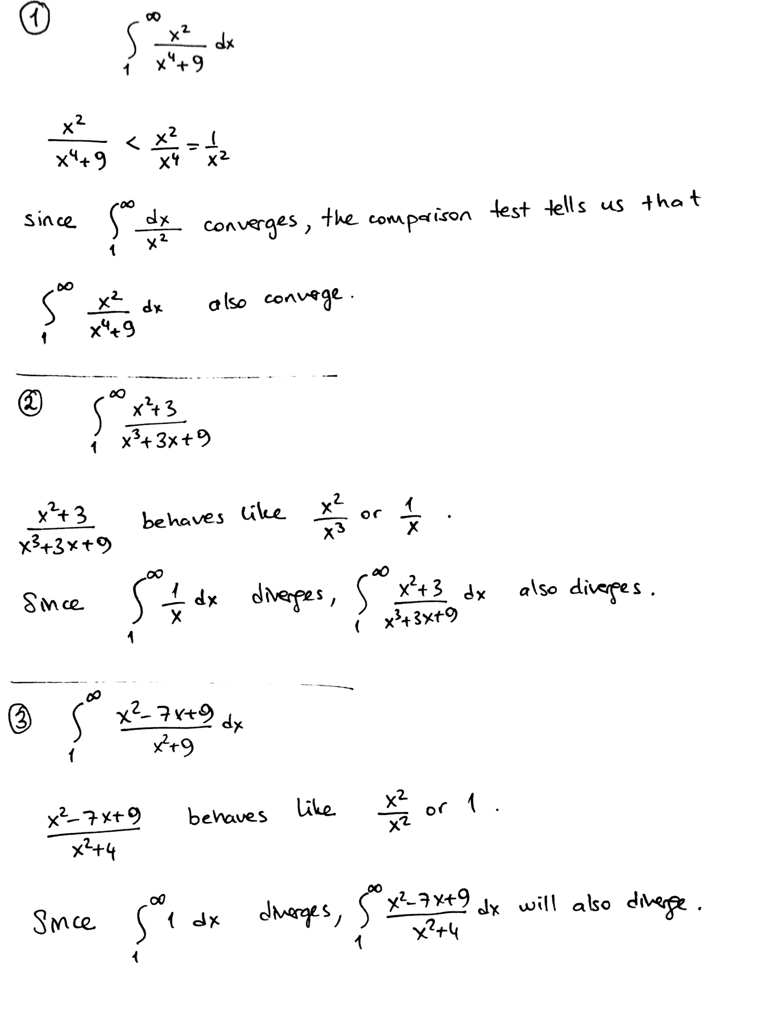 ① ∫₁^∞ x²/(x⁴+9) dx
x²/(x⁴+9) < x²/x⁴ = 1/x²
since ∫₁^∞ dx/x² converges, the comparison test tells us that
∫₁^∞ x²/(x⁴+9) dx also converge.
② ∫₁^∞ (x²+3)/(x³+3x+9)
(x²+3)/(x³+3x+9) behaves like x²/x³ or 1/x .
Since ∫₁^∞ 1/x dx diverges, ∫₁^∞ (x²+3)/(x³+3x+9) dx also diverges.
③ ∫₁^∞ (x²-7x+9)/(x²+9) dx
(x²-7x+9)/(x²+4) behaves like x²/x² or 1 .
Since ∫₁^∞ 1 dx diverges, ∫₁^∞ (x²-7x+9)/(x²+4) dx will also diverge.